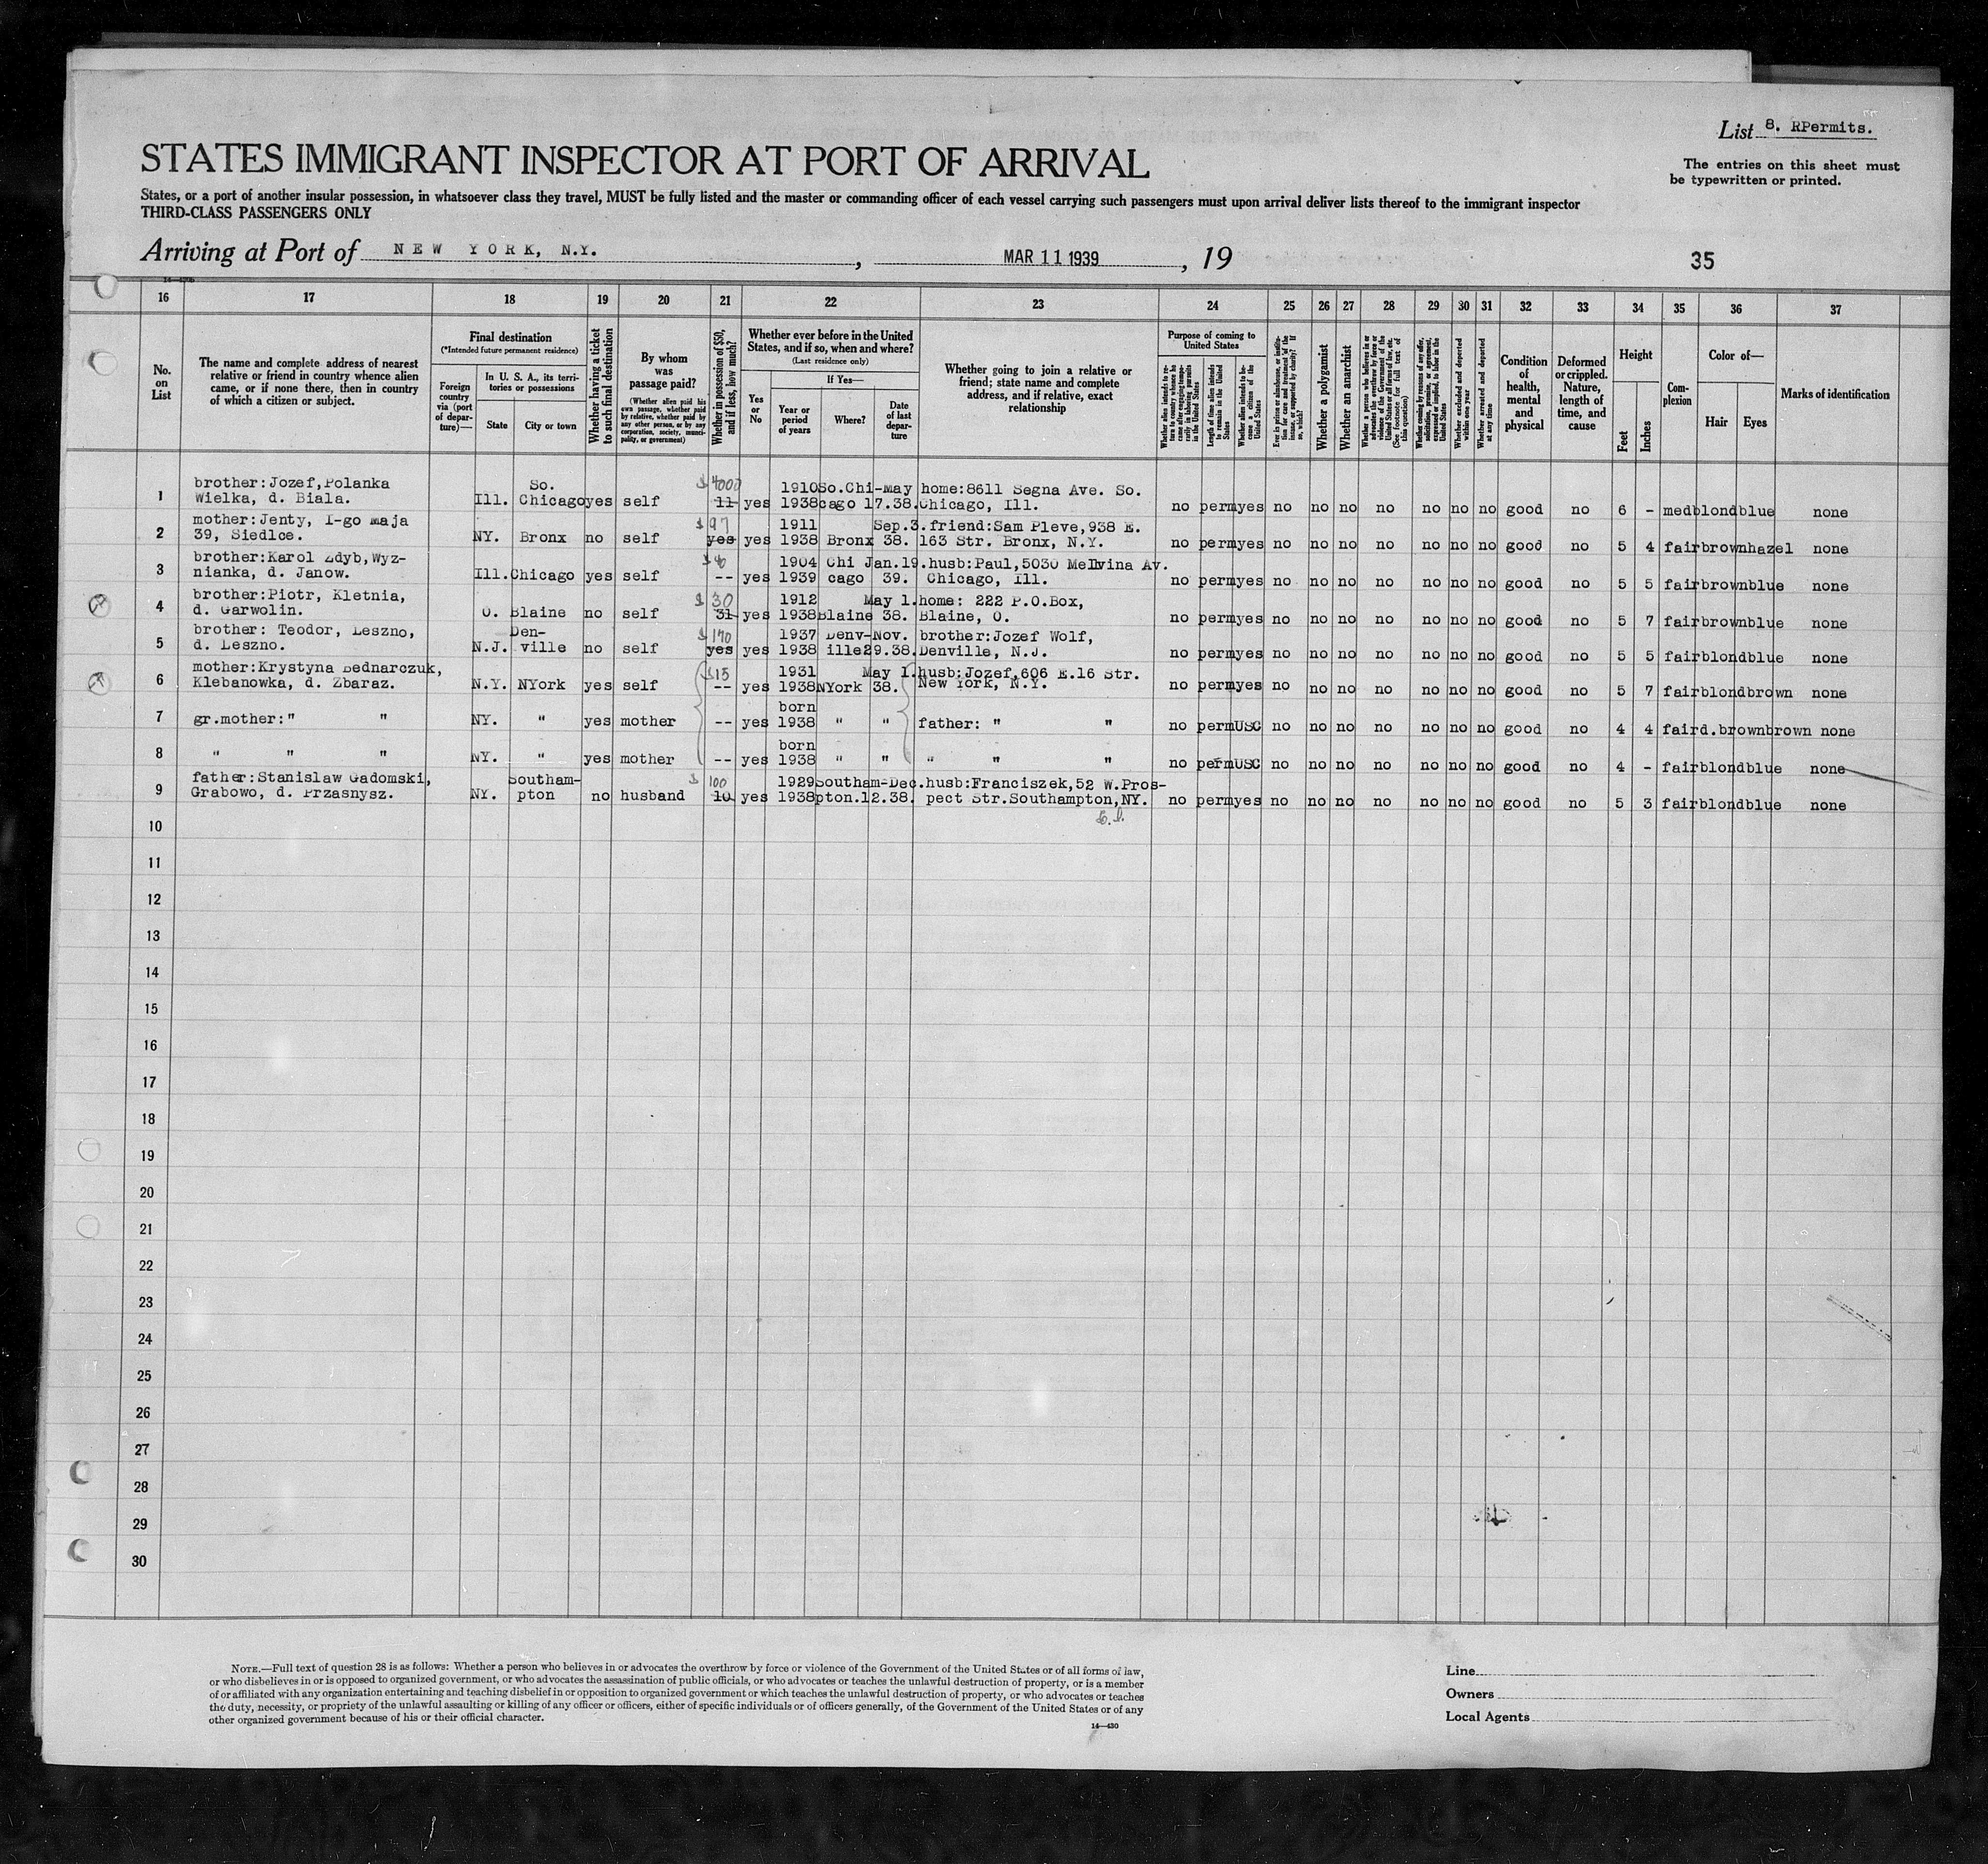 List 8. RPermits.
STATES IMMIGRANT INSPECTOR AT PORT OF ARRIVAL
The entries on this sheet must
be typewritten or printed.
States, or a port of another insular possession, in whatsoever class they travel, MUST be fully listed and the master or commanding officer of each vessel carrying such passengers must upon arrival deliver lists thereof to the immigrant inspector
THIRD-CLASS PASSENGERS ONLY
Arriving at Port of NEW YORK, N.Y. , MAR 11 1939 , 19 35
16 17 18 19 20 21 22 23 24 25 26 27 28 29 30 31 32 33 34 35 36 37
No. on List
The name and complete address of nearest
relative or friend in country whence alien
came, or if none there, then in country
of which a citizen or subject.
Final destination
(*Intended future permanent residence)
Foreign country via (port of departure)—
In U. S. A., its territories or possessions
State
City or town
Whether having a ticket to such final destination
By whom was passage paid?
(Whether alien paid his own passage, whether paid by relative, whether paid by any other person, or by any corporation, society, municipality, or government)
Whether in possession of $50, and if less, how much?
Whether ever before in the United
States, and if so, when and where?
(Last residence only)
Yes or No
If Yes—
Year or period of years
Where?
Date of last departure
Whether going to join a relative or
friend; state name and complete
address, and if relative, exact
relationship
Purpose of coming to United States
Length of time alien intends to remain in the United States
Whether alien intends to become a citizen of the United States
Whether a polygamist
Whether an anarchist
Whether excluded and deported within one year
Whether arrested and deported at any time
Condition of health, mental and physical
Deformed or crippled. Nature, length of time, and cause
Height
Feet
Inches
Complexion
Color of—
Hair
Eyes
Marks of identification
1 brother:Jozef,Polanka Wielka, d. Biala. Ill. So. Chicago yes self $4000 11 yes 1910 1938 So.Chicago May 17.38. home:8611 Segna Ave. So. Chicago, Ill. no perm yes no no no no no no no good no 6 - med blond blue none
2 mother:Jenty, I-go maja 39, Siedlce. NY. Bronx no self $97 yes yes 1911 1938 Bronx Sep.3. 38. friend:Sam Pleve,938 E. 163 Str. Bronx, N.Y. no perm yes no no no no no no no good no 5 4 fair brown hazel none
3 brother:Karol Zdyb,Wyznianka, d. Janow. Ill. Chicago yes self -- yes 1904 1939 Chicago Jan.19. 39. husb:Paul,5030 Mellvina Av. Chicago, Ill. no perm yes no no no no no no no good no 5 5 fair brown blue none
4 brother:Piotr, Kletnia, d. Garwolin. O. Blaine no self $30 31 yes 1912 1938 Blaine May 1. 38. home: 222 P.O.Box, Blaine, O. no perm yes no no no no no no no good no 5 7 fair brown blue none
5 brother: Teodor, Leszno, d. Leszno. N.J. Denville no self $170 yes yes 1937 1938 Denville Nov. 29.38. brother:Jozef Wolf, Denville, N.J. no perm yes no no no no no no no good no 5 5 fair blond blue none
6 mother:Krystyna Bednarczuk, Klebanowka, d. Zbaraz. N.Y. NYork yes self $15 -- yes 1931 1938 NYork May 1. 38. husb:Jozef,606 E.16 Str. New York, N.Y. no perm yes no no no no no no no good no 5 7 fair blond brown none
7 gr.mother:" " NY. " yes mother -- yes born 1938 " " father: " " no perm USC no no no no no no no good no 4 4 fair d.brown brown none
8 " " " NY. " yes mother -- yes born 1938 " " " " " no perm USC no no no no no no no good no 4 - fair blond blue none
9 father:Stanislaw Gadomski, Grabowo, d. Przasnysz. NY. Southampton no husband $100 10 yes 1929 1938 Southampton. Dec. 12.38. husb:Franciszek,52 W.Prospect Str.Southampton,NY. no perm yes no no no no no no no good no 5 3 fair blond blue none
10
11
12
13
14
15
16
17
18
19
20
21
22
23
24
25
26
27
28
29
30
NOTE.—Full text of question 28 is as follows: Whether a person who believes in or advocates the overthrow by force or violence of the Government of the United States or of all forms of law,
or who disbelieves in or is opposed to organized government, or who advocates the assassination of public officials, or who advocates or teaches the unlawful destruction of property, or is a member
of or affiliated with any organization entertaining and teaching disbelief in or opposition to organized government or which teaches the unlawful destruction of property, or who advocates or teaches
the duty, necessity, or propriety of the unlawful assaulting or killing of any officer or officers, either of specific individuals or of officers generally, of the Government of the United States or of any
other organized government because of his or their official character.
14—430
Line
Owners
Local Agents